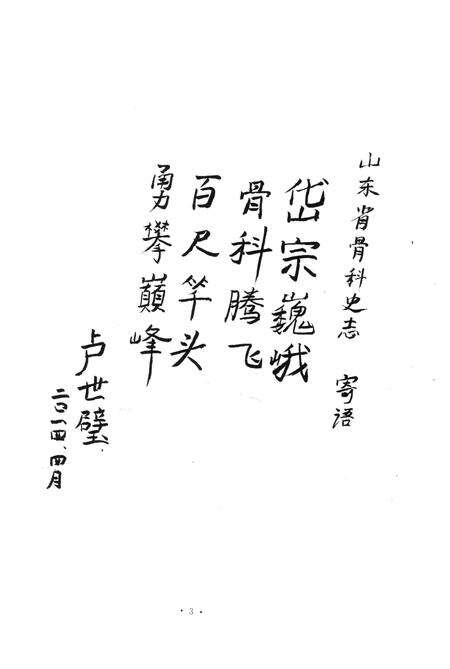 山东省骨科史志 寄语
岱宗巍峨
骨科腾飞
百尺竿头
勇攀巅峰
卢世璧
二〇一四、四月
· 3 ·